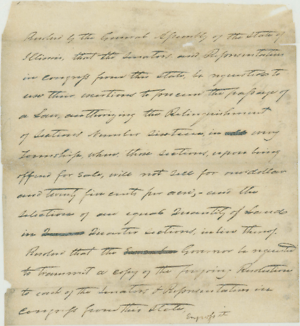 Resolved by the General Assembly of the State of
Illinois, that the Senators and Representative
in Congress from this State, be requested to
use their exertions to procure the passage of
a Law, authorizing the Relinquishment
of sections Number sixteen, in any
township where those sections, upon being
offered for sale, will not sell for one dollar
and twenty five cents per acre; and the
selection of an equal Quantity of Land
in Quarter sections, in lieu thereof
Resolved that the Governor be requested
to transmit a copy of the foregoing Resolution
to each of the Senators & Representatives in
Congress from this State